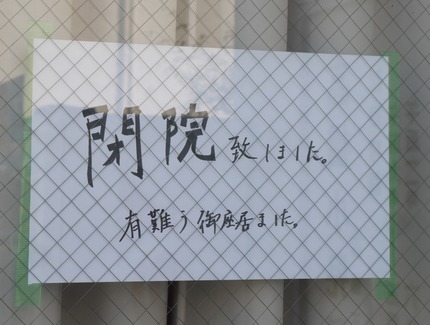 閉院致しました。
有難う御座居ました。